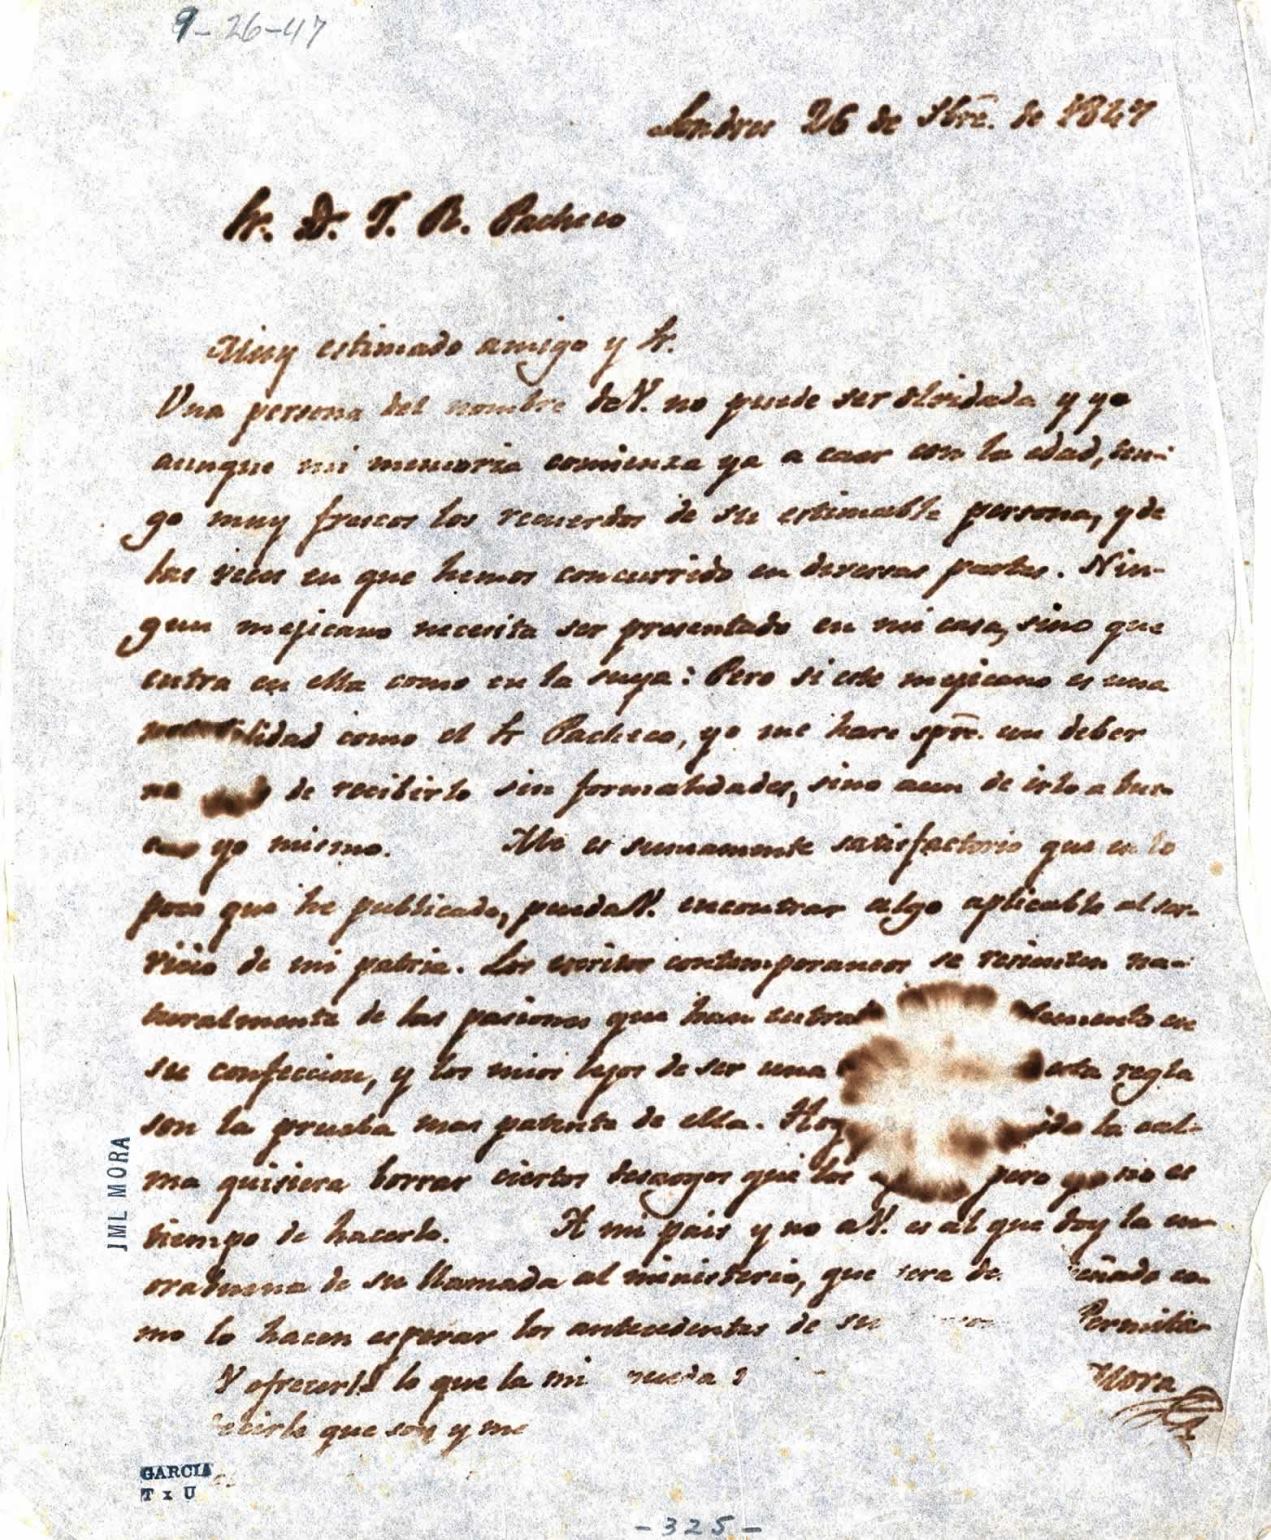 9-26-47
Londres 26 de Sbre. de 1847
Sr. D. J. R. Pacheco
Muy estimado amigo y Sr.
Una persona del nombre de V. no puede ser olvidada y yo
aunque mi memoria comienza ya a caer con la edad, ten-
go muy frescos los recuerdos de su estimable persona, y de
las veces en que hemos concurrido en diversas partes. Nin-
gun mejicano necesita ser presentado en mi casa, sino que
entra en ella como en la suya: Pero si este mejicano es una
como el Sr Pacheco, yo me hare spre. un deber
no de recibirlo sin formalidades, sino aun de irlo a bus-
yo mismo. Me es sumamente satisfactorio que en lo
poco que he publicado, pueda V. encontrar algo aplicable al ser-
vicio de mi patria. Los escritos contemporaneos se resienten na-
turalmente de las pasiones que han en
su confeccion, y los mios lejos de ser una esta regla
son la prueba mas patente de ella. Hoy la cal-
ma quisiera borrar ciertos desaogos que los pero ya no es
tiempo de hacerlo. A mi pais y no a V. es al que doy la en-
orabuena de su llamada al ministerio, que sera co-
mo lo hacen esperar los antecedentes de su Permita
V ofrecerle lo que la mi
que soy y me
Mora
JML MORA
GARCIA
T x U
-325-